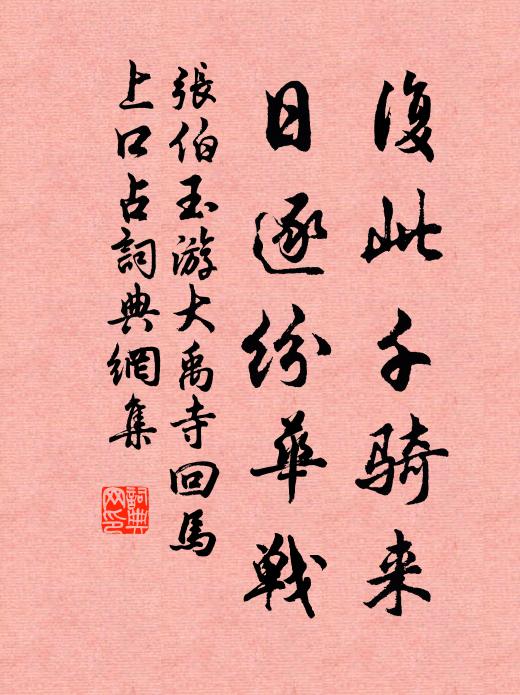 復此千騎来
日逐紛華戦
張伯玉游大禹寺回馬
上口占詞典網集
詞典网印